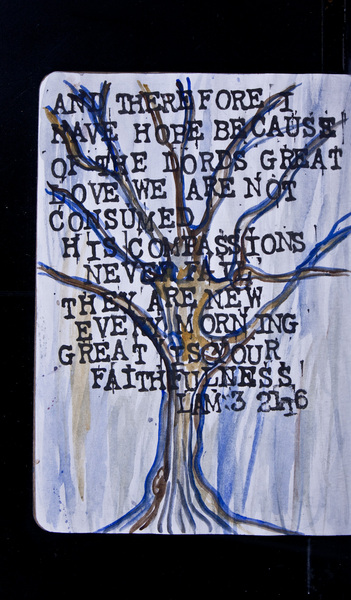 AND THEREFORE I
HAVE HOPE BECAUSE
OF THE LORDS GREAT
LOVE WE ARE NOT
CONSUMED
HIS COMPASSIONS
NEVER FAIL
THEY ARE NEW
EVERY MORNING
GREAT IS YOUR
FAITHFULNESS
LAM 3 21-6